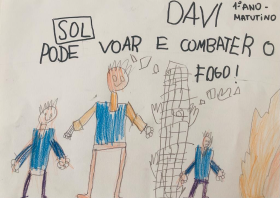 DAVI 1º ANO -
MATUTINO
SOL
PODE VOAR E COMBATER O
FOGO!